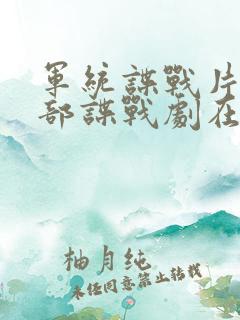 軍統諜戰片
部諜戰劇在
柚月純
未經同意禁止轉載